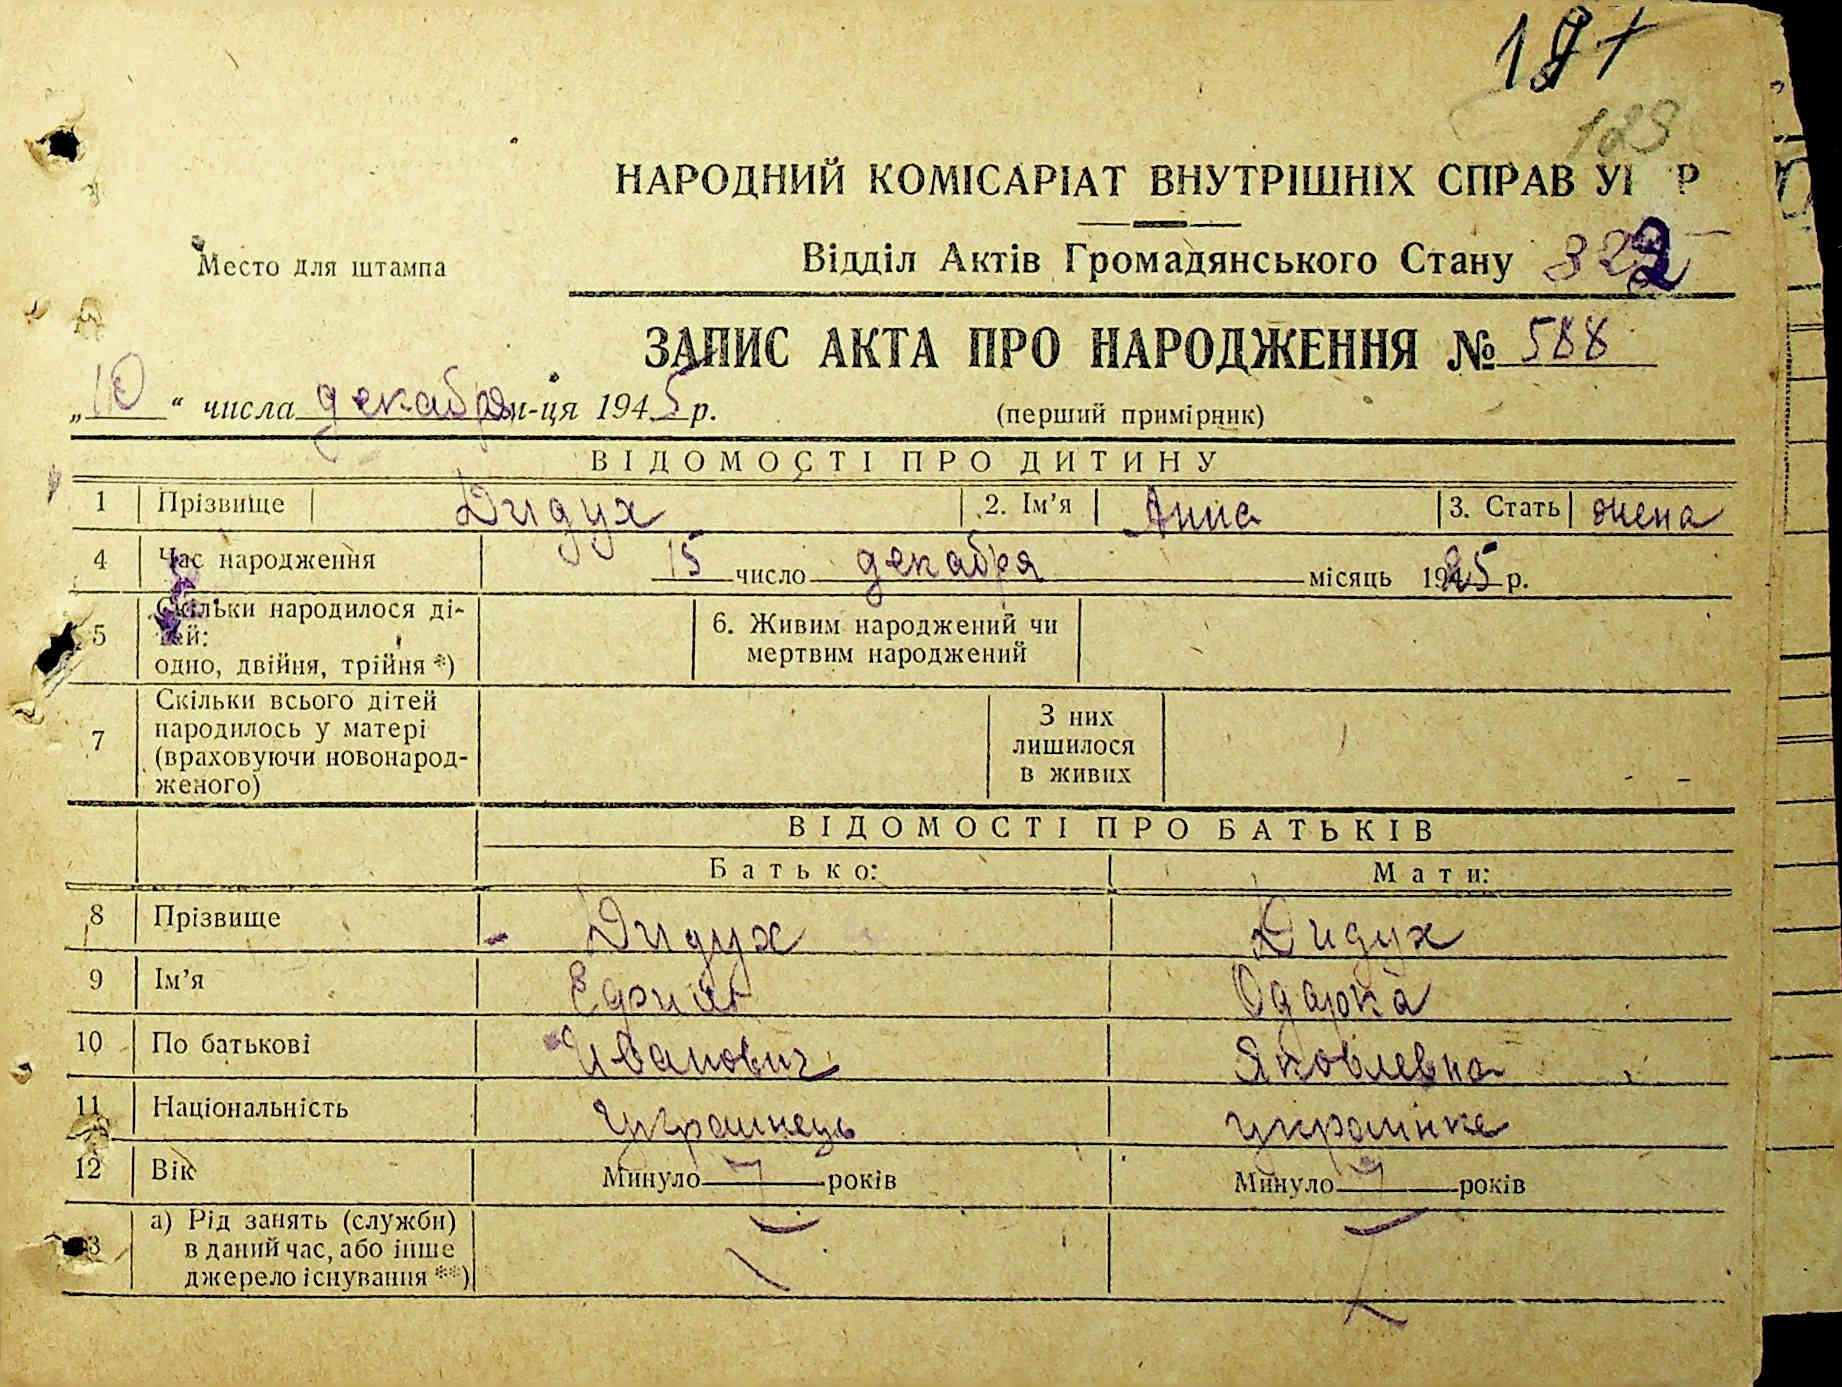 123
НАРОДНИЙ КОМІСАРІАТ ВНУТРІШНІХ СПРАВ У Р
Место для штампа
Відділ Актів Громадянського Стану 322
ЗАПИС АКТА ПРО НАРОДЖЕННЯ № 588
„10“ числа декабря м-ця 1945 р. (перший примірник)
ВІДОМОСТІ ПРО ДИТИНУ
1 Прізвище Дидух 2. Ім’я Анна 3. Стать жена
4 Час народження 15 число декабря місяць 1925 р.
5 Скільки народилося дітей: одно, двійня, трійня *) 6. Живим народжений чи мертвим народжений
7 Скільки всього дітей народилось у матері (враховуючи новонародженого) З них лишилося в живих
ВІДОМОСТІ ПРО БАТЬКІВ
Батько: Мати:
8 Прізвище Дидух Дидух
9 Ім’я Одарка
10 По батькові Иванович Яковлевна
11 Національність украинець украинка
12 Вік Минуло років Минуло років
13 а) Рід занять (служби) в даний час, або інше джерело існування **)